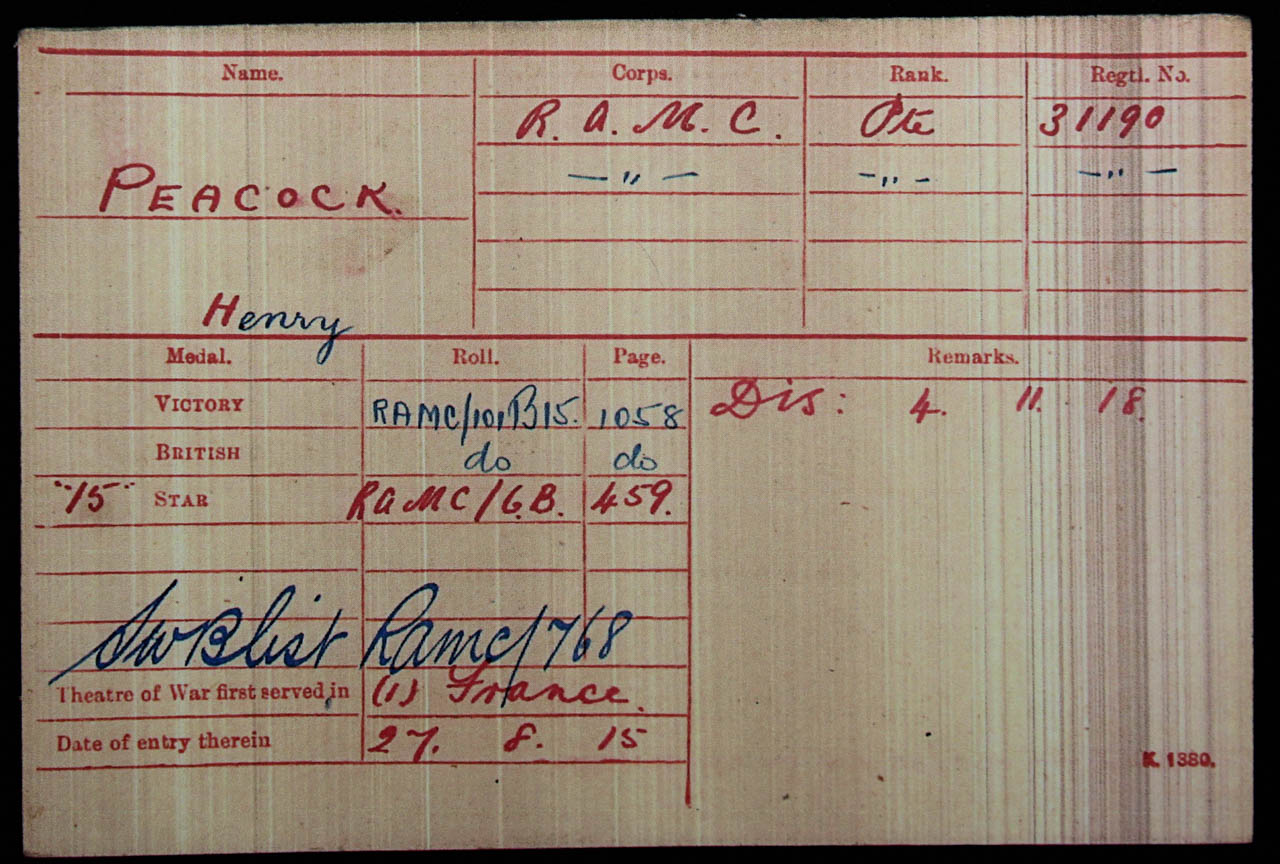 Name. Corps. Rank. Regtl. No.
R. A. M. C. Pte 31190
PEACOCK. — " — — " — — " —
Henry
Medal. Roll. Page. Remarks.
VICTORY RAMC/101B15. 1058 Dis: 4. 11. 18.
BRITISH do do
"15" STAR RAMC/6B. 459.
SWB list RAMC/768
Theatre of War first served in (1) France.
Date of entry therein 27. 8. 15
K. 1380.